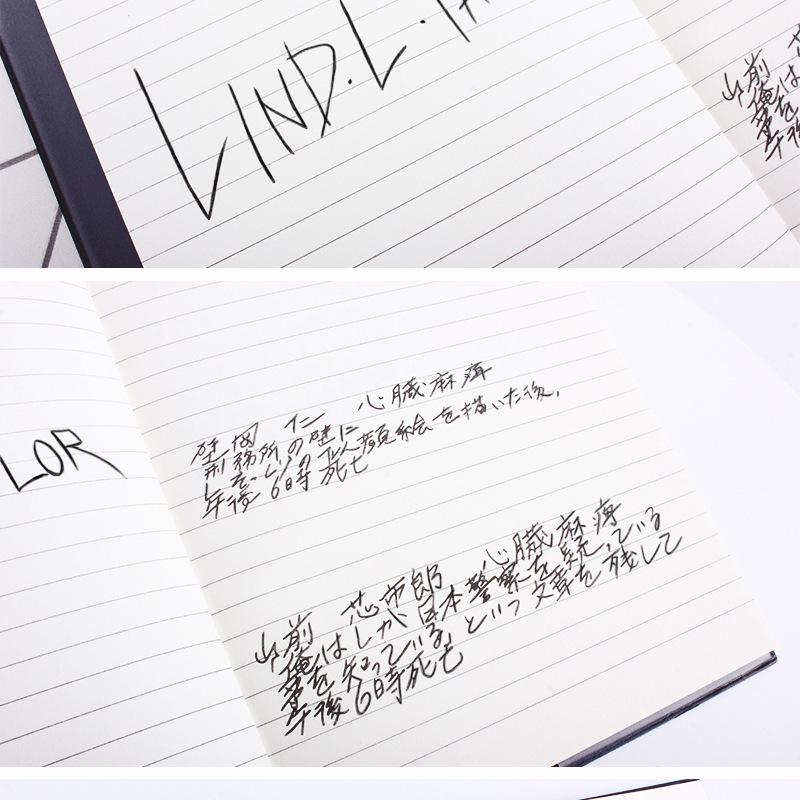 LIND.L.
山前
俺は
事を
午後
LOR
仁 心臓麻痺
刑務所の壁に
顔絵を描いた後、
午後6時死亡
山前 芯市郎 心臓麻痺
俺はLが日本警察を疑っている
事を知っている、という文章を残して
午後6時死亡